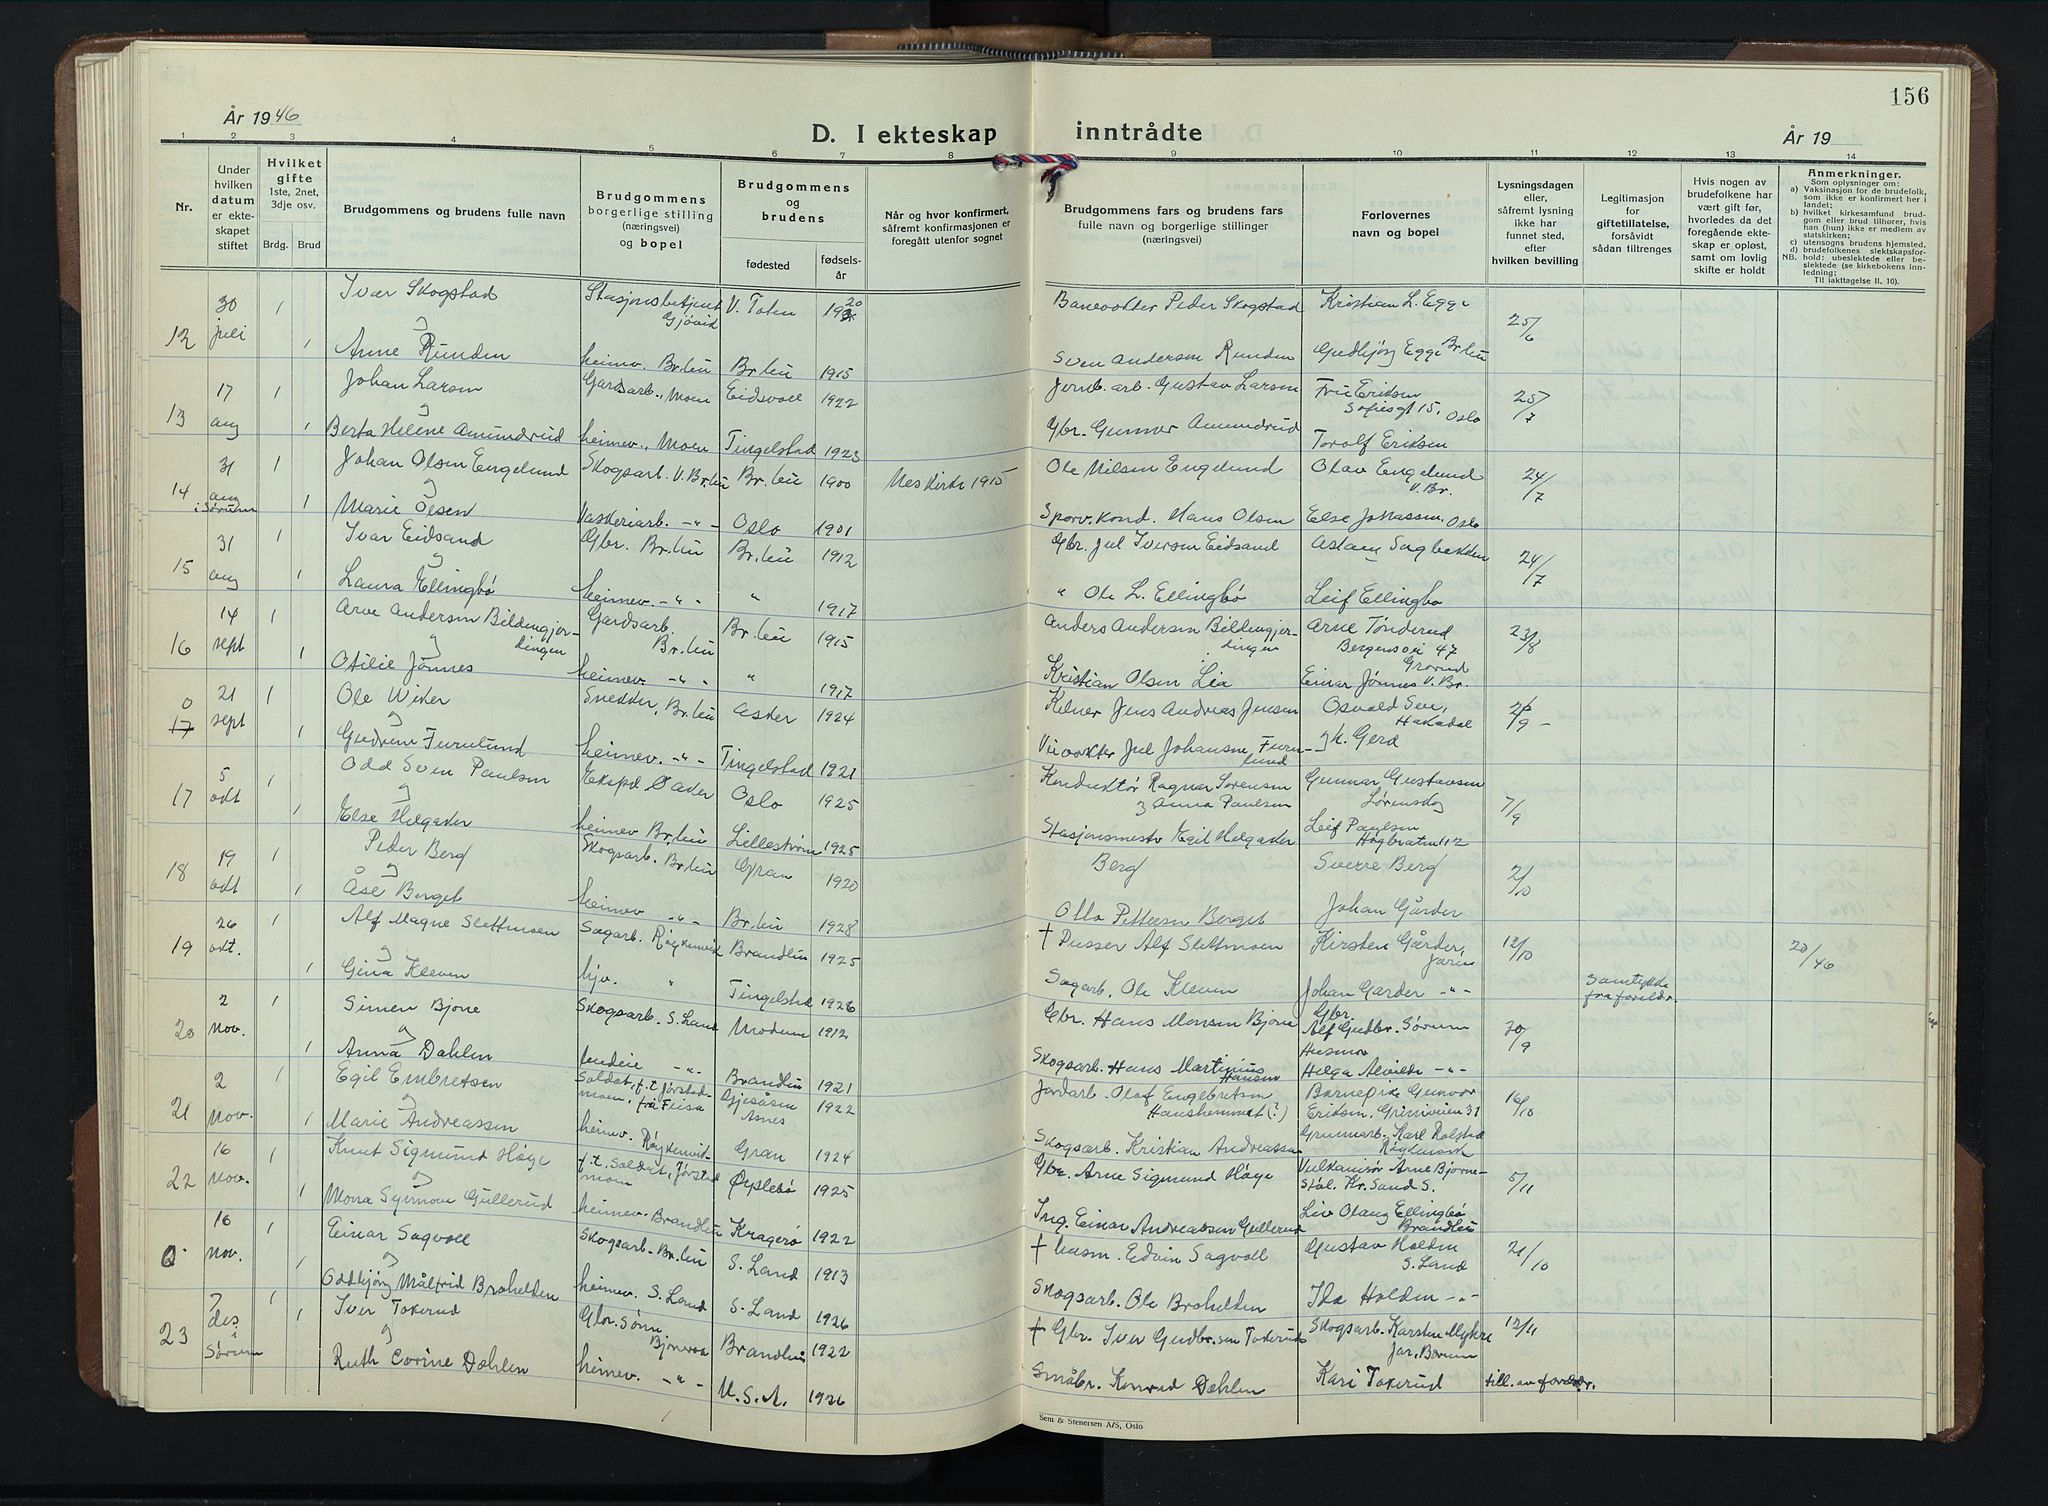 156
År 1946
D. I ekteskap inntrådte
År 19
1 2 3 4 5 6 7 8 9 10 11 12 13 14
Nr.
Under hvilken datum er ekteskapet stiftet
Hvilket gifte
1ste, 2net, 3dje osv.
Brdg. Brud
Brudgommens og brudens fulle navn
Brudgommens borgerlige stilling (næringsvei) og bopel
Brudgommens og brudens
fødested
fødselsår
Når og hvor konfirmert, såfremt konfirmasjonen er foregått utenfor sognet
Brudgommens fars og brudens fars fulle navn og borgerlige stillinger (næringsvei)
Forlovernes navn og bopel
Lysningsdagen eller, såfremt lysning ikke har funnet sted, efter hvilken bevilling
Legitimasjon for giftetillatelse, forsåvidt sådan tiltrenges
Hvis nogen av brudefolkene har vært gift før, hvorledes da det foregående ekteskap er opløst, samt om lovlig skifte er holdt
Anmerkninger.
Som oplysninger om:
a) Vaksinasjon for de brudefolk, som ikke er konfirmert her i landet;
b) hvilket kirkesamfund brudgom eller brud tilhører, hvis han (hun) ikke er medlem av statskirken;
c) utensogns brudens hjemsted,
d) brudefolkenes slektskapsforhold: ubeslektede eller beslektede (se kirkebokens innledning;
NB.
Til iakttagelse II, 10).
12 30 juli 1 Ivar Skogstad Stasjonsbetjent Gjøvik V. Toten 1920 Banevokter Peder Skogstad Kristian L. Egge 25/6
1 Anne Runden heimev. Br.bu Br.bu 1915 Sven Andersen Runden Gudbjørg Egge Br.bu
13 17 aug 1 Johan Larsen Gardsarb., Moen Eidsvoll 1922 Jernb. arb. Gustav Larsen Fru Eriksen Sofiesgt 15, Oslo 25/7
1 Berta Helene Amundrud heimev., Moen Tingelstad 1923 Gbr. Gunner Amundrud Torolf Eriksen
14 31 aug i Sørum 1 Johan Olsen Engelund Skogsarb. V. Br.bu Br.bu 1900 Nes kirke 1915 Ole Nilsen Engelund Olav Engelund V. Br. 24/7
1 Marie Olsen Vaskeriarb. -"- Oslo 1901 Sporv. kond. Hans Olsen Else Johassen, Oslo
15 31 aug 1 Ivar Eidsand Gbr. Br.bu Br.bu 1912 Gbr. Jul Iversen Eidsand 24/7
1 Laura Ellingbø heimev. -"- " 1917 " Ole L. Ellingbø Leif Ellingbø
16 14 sept 1 Arve Andersen Bildengjerdingen Gardsarb. Br.bu Br.bu 1915 Anders Andersen Bildengjerdingen Arne Tønderud Bergensvei 47 Grorud 23/8
1 Otilie Jønnes heimev. -"- " 1917 Kristian Olsen Lia Einar Jønnes V. Br.
0 17 21 sept 1 Ole Wiker Snekker, Br.bu Asker 1924 Kelner Jens Andreas Jensen Osvald Sve, Hakadal
1 Gudrun Furulund heimev. -"- Tingelstad 1921 Jul Johansen Furulund Gerd
17 5 okt 1 Odd Sven Paulsen Oslo 1925 Konduktør Ragnar Sørensen Anna Paulsen Gunnar Gustavsen Lørenskog 7/9
1 Else Helgaker heimev. Br.bu Lillestrøm 1925 Stasjonsmestr Egil Helgaker Leif Paulsen Høybråten 112
18 19 okt 1 Peder Berg Skogsarb. Br.bu Gran 1920 Berg Sverre Berg 2/10
1 Åse Berget heimev. -"- Br.bu 1928 Otto Pettersen Berget Johan Gårder
19 26 okt. 1 Alf Magne Slettmoen Sagarb. Røykenvik Brandbu 1925 † Pusser Alf Slettmoen Kirsten Gårder, Jaren 12/10 20/46
1 Gina Kleven hjv. " Tingelstad 1926 Sagarb. Ole Kleven Johan Gårder -"- Samtykke fra foreldr.
20 2 nov. 1 Simen Bjone Skogsarb. S. Land Modum 1912 Gbr. Hans Monsen Bjone Gbr. Alf Gudbr. Sørum 20/9
1 Anna Dahlen -"- Brandbu 1921 Skogsarb. Hans Martinius Hansen Husmor Helga Alvilde -"-
21 2 nov. 1 Egil Embretsen Soldat, f.t. Jørstadmoen, frå Flisa Gjesåsen Åsnes 1922 Jordarb. Olaf Engebretsen Hanshemmet (?) Barnepike Gunvor Eriksen, Grimiveien 31 16/10
1 Marie Andreassen heimev. Røykenvik Gran 1924 Skogsarb. Kristian Andreassen Grunnarb. Karl Rolstad Røykenvik
22 16 nov. 1 Knut Sigmund Høye f.t. Soldat, Jørstadmoen Øyslebø 1925 Gbr. Arne Sigmund Høye Vulkanisør Arne Bjørnestøl. Kr. Sand S. 5/11
1 Mona Synnøve Gullerud heimev. Brandbu Kragerø 1922 Ing. Einar Andreassen Gullerud Liv Olaug Ellingbø Brandbu
0 16 nov. 1 Einar Sagvoll Skogsarb. Br.bu S. Land 1913 † husm. Edvin Sagvoll Gustav Holden S. Land 21/10
1 Oddbjørg Målfrid Brohelden heimev. S. Land S. Land 1926 Skogsarb. Ole Brohelden Ida Holden -"-
23 7 des i Sørum 1 Iver Tokerud Gbr. Sønn Bjoneroa Brandbu 1922 † Gbr. Iver Gudbr.sen Tokerud Skogsarb. Karsten Myhre Jar, Bærum 12/11
1 Ruth Corine Dæhlen heimev. -"- U.S.A. 1926 Småbr. Konrad Dæhlen Kari Tokerud till. av foreldr.
Sem & Stenersen A/S, Oslo